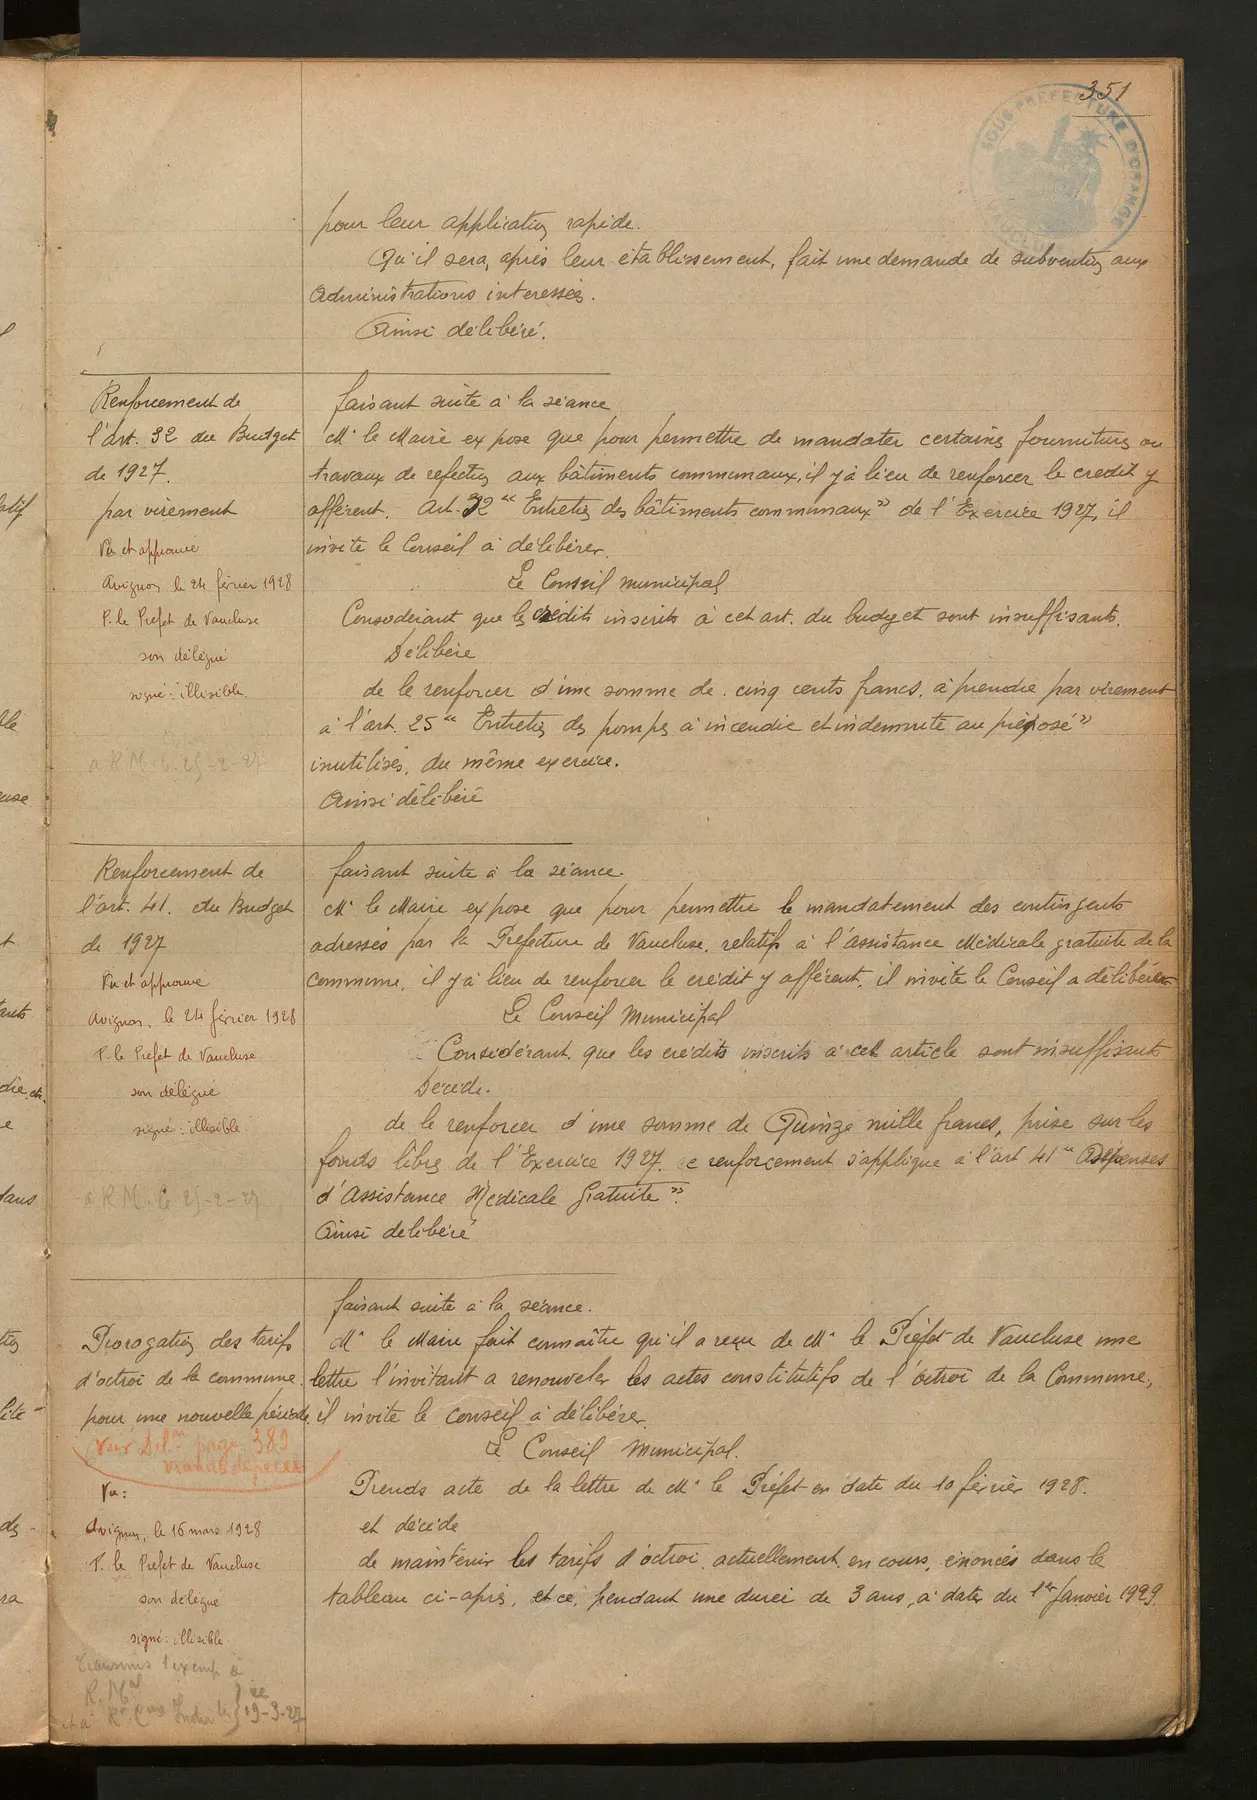 351
SOUS-PREFECTURE D'ORANGE
pour leur application rapide.
Qu'il sera, après leur établissement, fait une demande de subvention aux
Administrations interessées.
Ainsi délibéré.
Renforcement de
l'Art. 32 du Budget
de 1927.
par virement
Vu et approuvé
Avignon le 24 février 1928
P. le Préfet de Vaucluse
son délégué
signé : illisible
a R.M. le 25-2-27
faisant suite à la séance
Mr le Maire expose que pour permettre de mandater certaines fournitures ou
travaux de refection aux bâtiments communaux, il y à lieu de renforcer le credit y
afférent. Art. 32 " Entretien des bâtiments communaux " de l'Exercice 1927, il
invite le Conseil à délibérer.
Le Conseil municipal
Considérant que les crédits inscrits à cet art. du budget sont insuffisants.
Délibère
de le renforcer d'une somme de cinq cents francs, à prendre par virement
à l'art. 25 " Entretien des pompes à incendie et indemnité au préposé "
inutilisés, du même exercice.
Ainsi délibéré
Renforcement de
l'art. 41. du Budget
de 1927
Vu et approuvé
Avignon, le 24 février 1928
P. le Préfet de Vaucluse
son délégué
signé : illisible
a R.M. le 25-2-27
faisant suite à la séance.
Mr le Maire expose que pour permettre le mandatement des contingents
adressés par la Préfecture de Vaucluse, relatifs à l'assistance Médicale gratuite de la
commune, il y à lieu de renforcer le crédit y afférent, il invite le Conseil a délibérer
Le Conseil Municipal
Considérant que les crédits inscrits à cet article sont insuffisants
Décide.
de le renforcer d'une somme de Quinze mille francs, prise sur les
fonds libres de l'Exercice 1927. ce renforcement s'applique à l'art 41 " Dépenses
d'Assistance Médicale Gratuite ".
Ainsi délibéré
Prorogation des tarifs
d'octroi de la commune
pour une nouvelle période
Voir Dél.on page 389
Vu :
Avignon, le 16 mars 1928
P. le Préfet de Vaucluse
son délégué
signé : illisible.
Transmis 1 exemp à
R. Mal
et à
le
19-3-27
faisant suite à la séance.
Mr le Maire fait connaître qu'il a reçu de Mr le Préfet de Vaucluse une
lettre l'invitant a renouveler les actes constitutifs de l'octroi de la Commune,
il invite le Conseil à délibérer.
Le Conseil Municipal.
Prends acte de la lettre de Mr le Préfet en date du 10 février 1928.
et décide
de maintenir les tarifs d'octroi actuellement en cours, énoncés dans le
tableau ci-après, et ce, pendant une durée de 3 ans, à dater du 1er Janvier 1929.